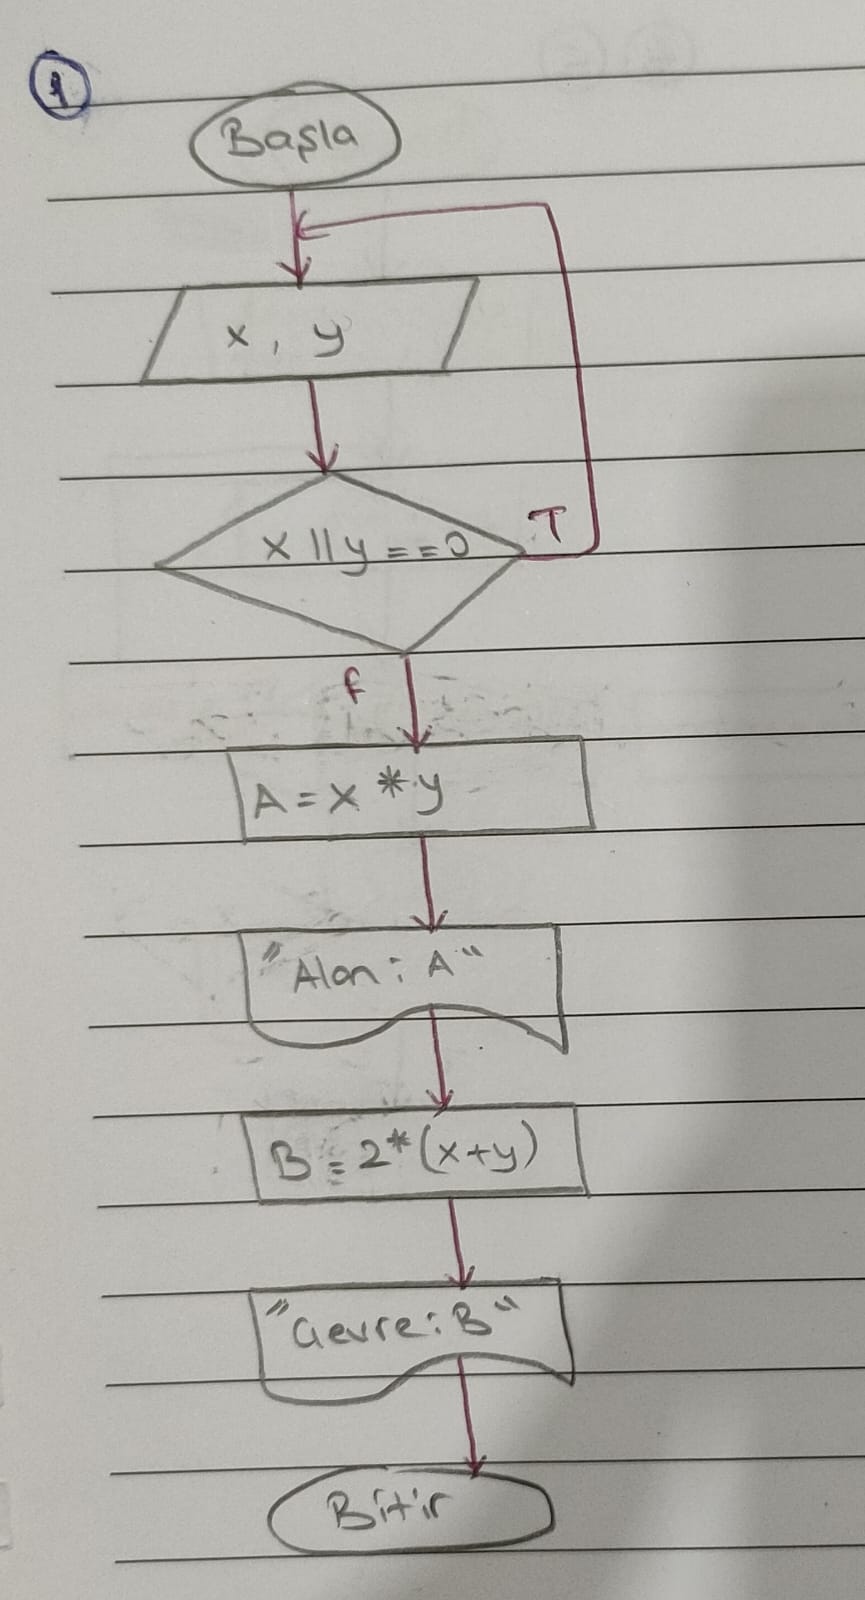 1
Başla
x, y
x || y == 0
T
f
A = x * y
"Alan: A"
B = 2*(x+y)
"Gevre: B"
Bitir